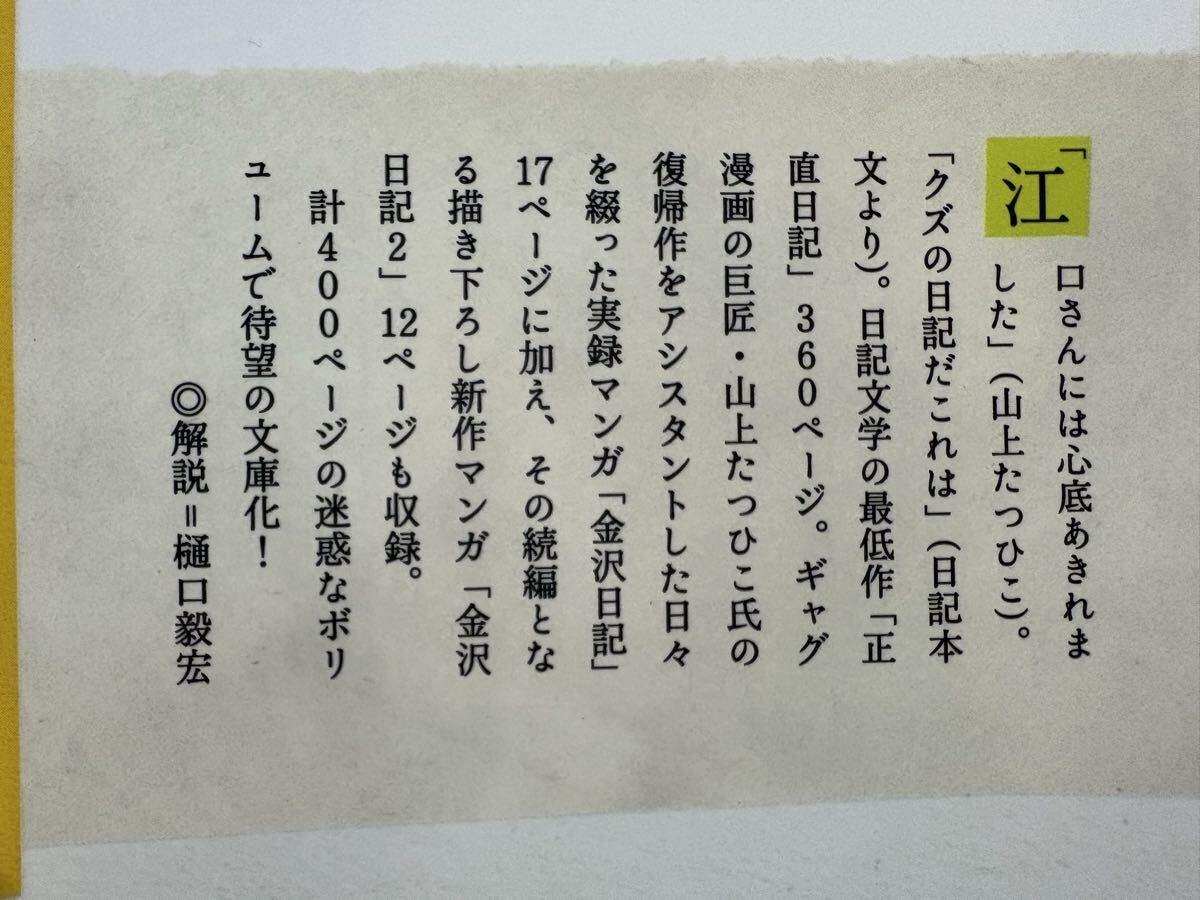 「江口さんには心底あきれま
した」(山上たつひこ)。
「クズの日記だこれは」(日記本
文より)。日記文学の最低作「正
直日記」360ページ。ギャグ
漫画の巨匠・山上たつひこ氏の
復帰作をアシスタントした日々
を綴った実録マンガ「金沢日記」
17ページに加え、その続編とな
る描き下ろし新作マンガ「金沢
日記2」12ページも収録。
計400ページの迷惑なボリ
ュームで待望の文庫化！
◎解説＝樋口毅宏